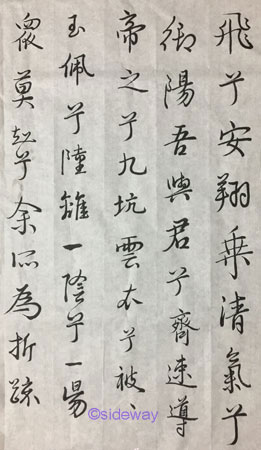 飛兮安翔乘清氣兮
御陽吾與君兮齊速導
帝之兮九坑雲衣兮被、
玉佩兮陸離一陰兮一陽
眾莫知兮余所為折疏
©sideway